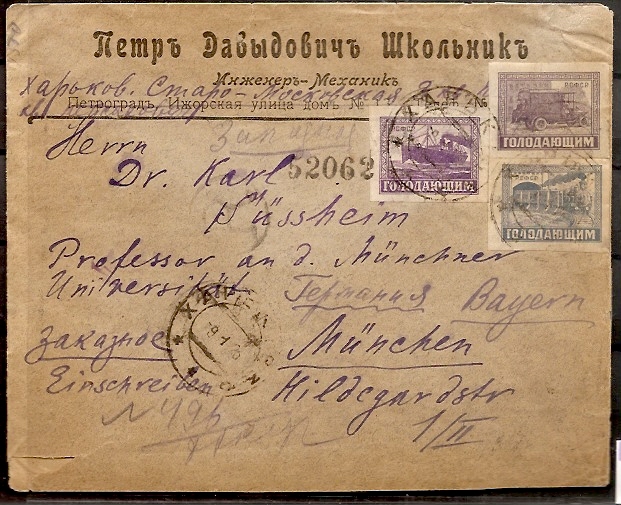 Петръ Давыдовичъ Школьникъ
Инженеръ-Механикъ
Харьков. Старо-Московская
Петроградъ, Ижорская улица домъ № №
52062
РСФСР
ГОЛОДАЮЩИМ
РСФСР
ГОЛОДАЮЩИМ
РСФСР
ГОЛОДАЮЩИМ
Herrn
Dr. Karl
Süssheim
Professor an d. Münchner
Universität Германия Bayern
Заказное München
Einschreiben Hildegardstr
1/II
№ 496